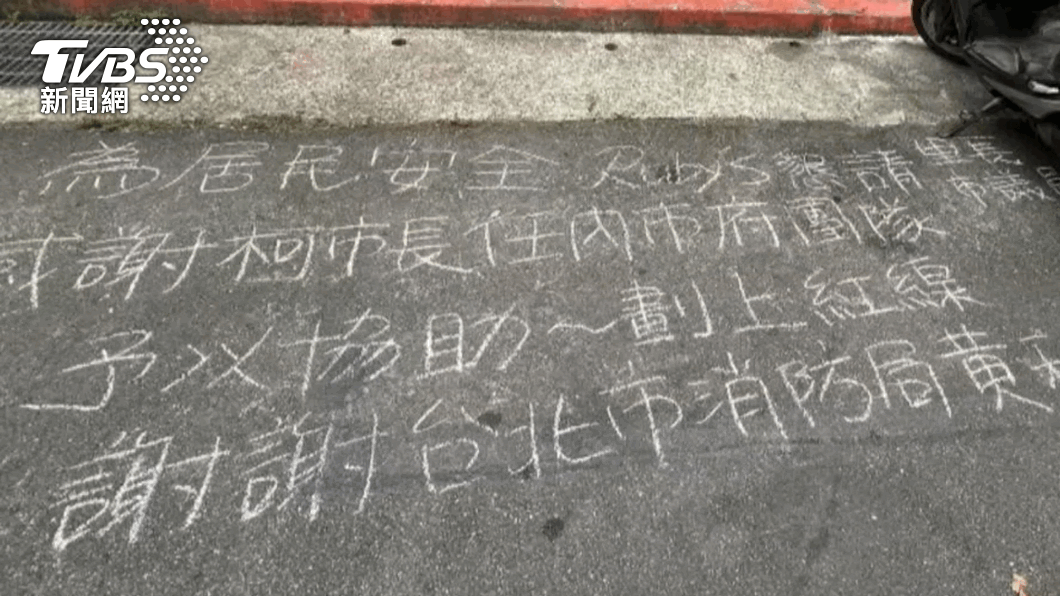 TVBS
新聞網
為居民安全 Ruby's 懇請里長
市議
感謝柯市長任內市府團隊
予以協助~劃上紅線
謝謝台北市消防局黃